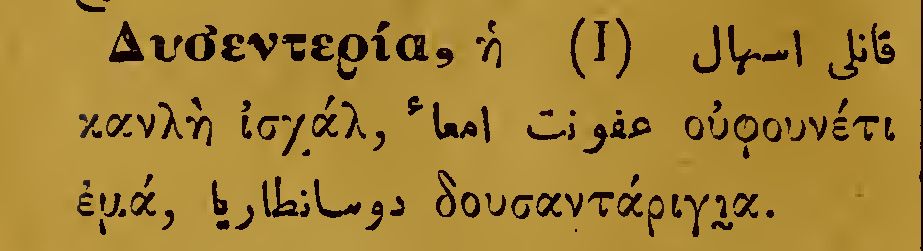 Δυσεντερία, ἡ (I) قانلی اسهال
κανλὴ ἰσχάλ, عفونت امعاء οὐφουνέτι
ἐμά, دوسانطاريا δουσαντάριγια.